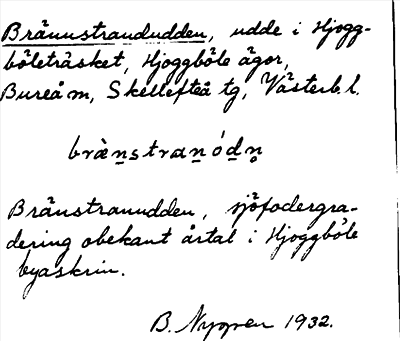 Brännstrandudden, udde i Hjogg-
böleträsket, Hjoggböle ägor,
Bureå m, Skellefteå tg, Västerb. l.
bràn̠stran̠ód̠n̥
Bränstranudden, sjöfodergra-
dering obekant årtal i Hjoggböle
byaskrin.
B. Nygren 1932.